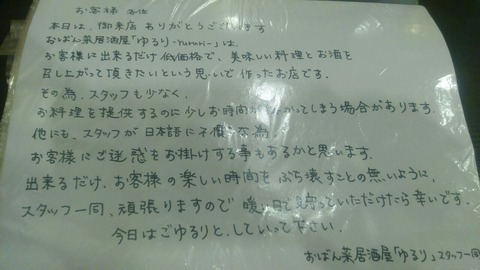 お客様 各位
本日は、御来店ありがとうございます
おばん菜居酒屋「ゆるり-Yururi-」は、
お客様に出来るだけ低価格で、美味しい料理とお酒を
召し上がって頂きたいという思いで作ったお店です。
その為、スタッフも少なく、
お料理を提供するのに少しお時間がかかってしまう場合があります。
他にも、スタッフが日本語に不慣な為、
お客様にご迷惑をお掛けする事もあるかと思います。
出来るだけ、お客様の楽しい時間をぶち壊すことの無いように、
スタッフ一同、頑張りますので暖い目で見守っていただけたら幸いです。
今日はごゆるりと、していって下さい。
おばん菜居酒屋「ゆるり」スタッフ一同